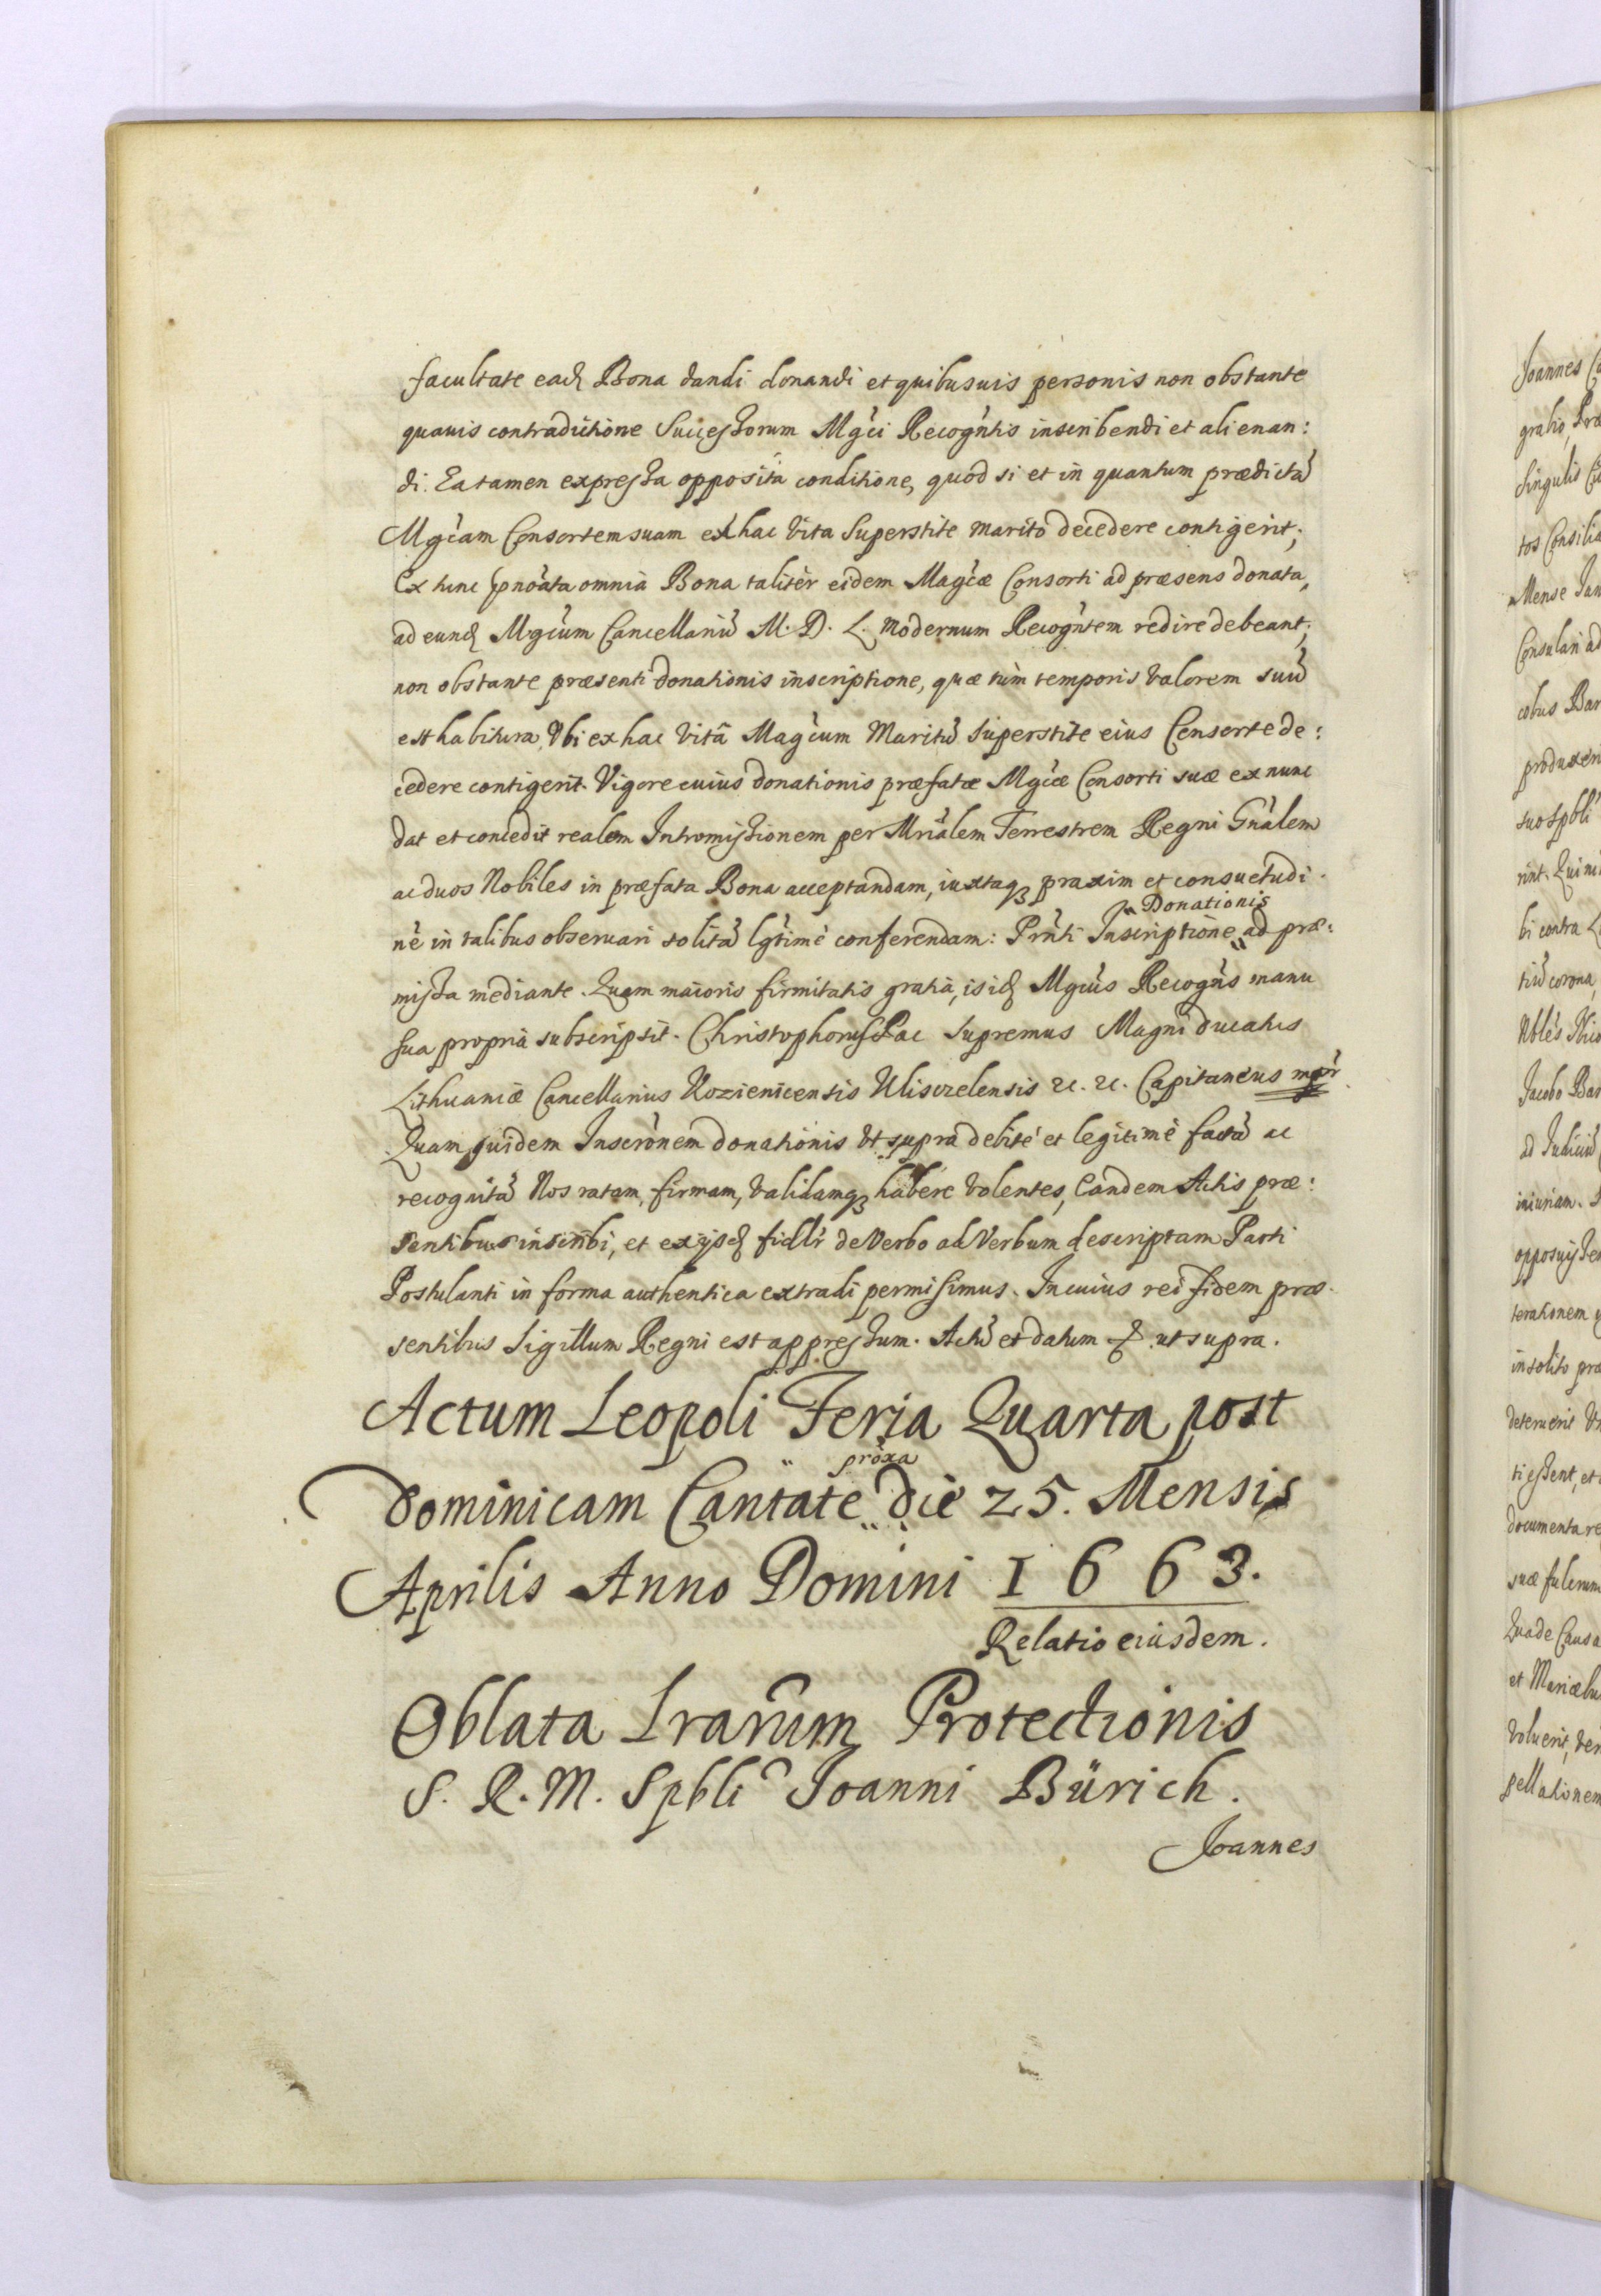 facultate eadꝫ Bona dandi donandi et quibusuis personis non obstante
quauis contradictione Successorum Mgci Recogntis inscribendi et alienan:
di. Ea tamen expressa opposita conditione, quod si et in quantum prædictā
Mgcam Consortem suam ex hac vita Superstite marito decedere contigerit;
Ex tunc pnoata omnia Bona taliter eidem Magcæ Consorti ad præsens donata,
ad eundꝫ Mgcum Cancellariū M. D. L. modernum Recogntem redire debeant;
non obstante præsenti donationis inscriptione, quæ tùm temporis valorem suū
est habitura, Vbi ex hac vitâ Magcum Maritū superstite eius Consorte de:
cedere contigerit. Vigore cuius donationis præfatæ Mgcæ Consorti suæ ex nunc
dat et concedit realem Intromissionem per Mrialem Terrestrem Regni Gnalem
ac duos Nobiles in præfata Bona acceptandam, iuxtaqꝫ praxim et consuetudi
nē in talibus obseruari solitā lgtimè conferendam: Prnti Inscriptione Donationis ad præ:
missa mediante. Quam maioris firmitatis gratià, is idꝫ Mgcus Recogns manu
sua propriâ subscripsit. Christophorus Pac Supremus Magni ducatus
Lithuaniæ Cancellarius Kozienicensis Ulisczelensis ꝛc. ꝛc. Capitaneus mpr
Quam quidem Inscronem donationis Vt supra debitè et legitimè factā ac
recognitā Nos ratam, firmam, validamqꝫ habere volentes, Eandem Actis præ:
sentibus inscribi, et ex ijsdꝫ fidlr de Verbo ad Verbum descriptam Parti
Postulanti in forma authentica extradi permisimus. In cuius rei fidem præ
sentibus Sigillum Regni est appressum. Actū et datum & ut supra.
Actum Leopoli Feria Quarta post
Dominicam Cantate proxa die 25. Mensis
Aprilis Anno Domini 1663.
Relatio eiusdem.
Oblata Lrarum Protectionis
S. R. M. Spbli Joanni Bürich.
Joannes